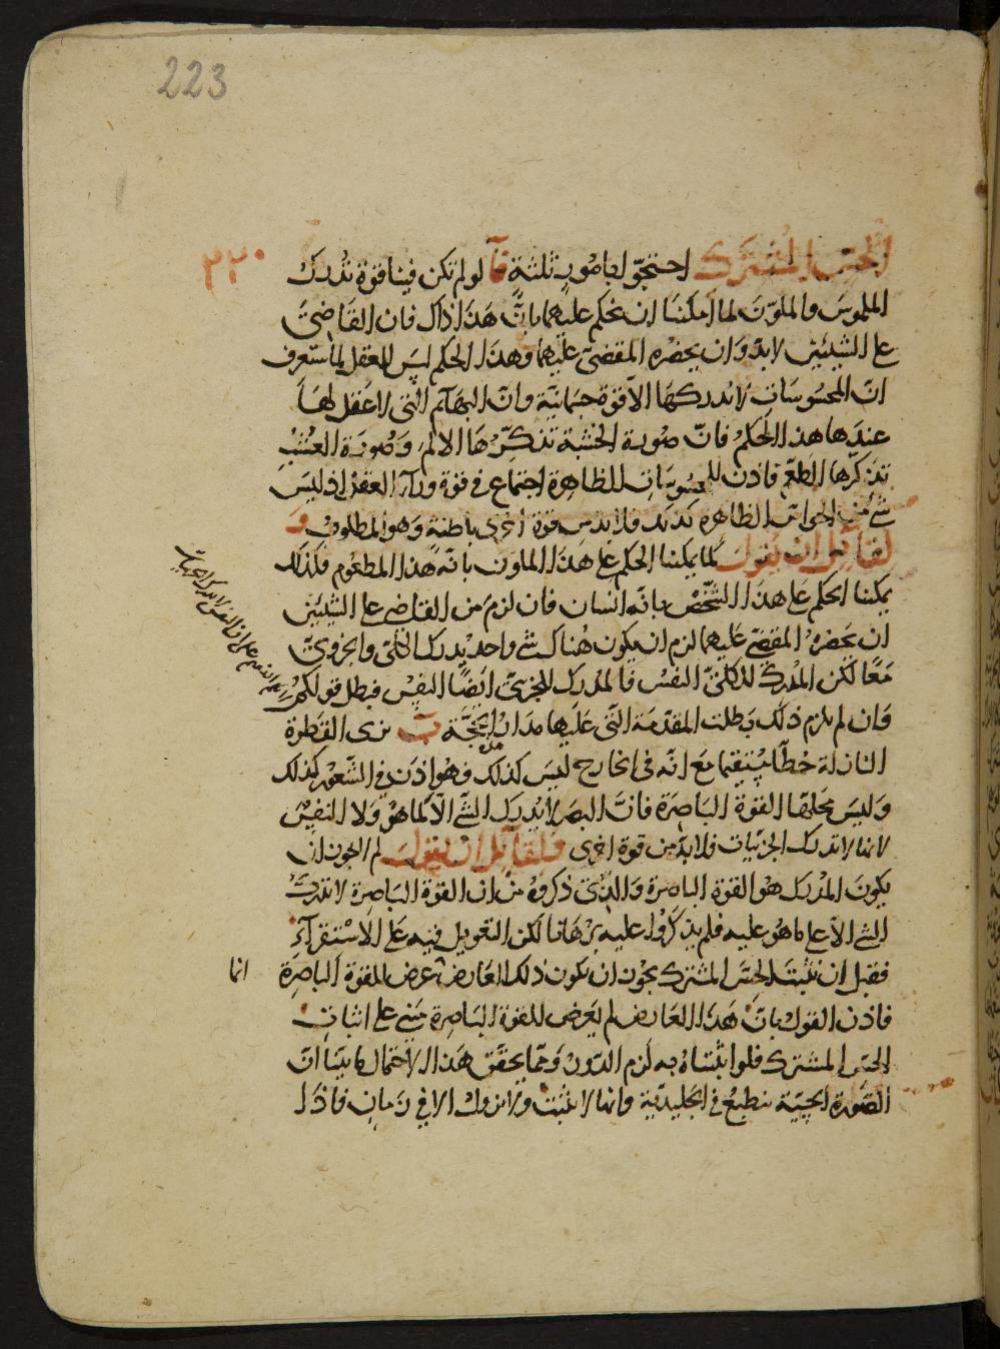 223
٢٢٠
الحس المشترك احتجوا بامور ثلثة فآ لو لم تكن فينا قوة تدرك
الملموس والملون لما امكننا ان نحكم عليهما بان هذا ذاك فان القاضى
على الشيئين لابد وان يحضره المقضى عليهما وهذا الحكم ليس للعقل لما ستعرف
ان المحسوسات لا تدركها الا قوة جسمانية وان البهائم التى لا عقل لها
عندها هذا الحكم فان صورة الخشبة تذكرها الالم وصورة العشب
تذكرها الطعم فاذن للمحسوسات الظاهرة اجتماع فى قوة وراء العقل اذ ليس
شئ من الحواس الظاهرة كذلك فلا بد من قوة اخرى باطنة وهو المطلوب و
لقائل ان يقول كما يمكننا الحكم على هذا الملون بانه هذا المطعوم فكذلك
يمكننا الحكم على هذا الشخص بانه انسان فان لزم من القاضى على الشيئين
ان يحضره المقضى عليهما لزم ان يكون هناك شئ واحد يدرك الكلى والجزوى
معا لكن المدرك للكلى النفس فالمدرك للجزئى ايضا النفس فبطل قولكم
وان لم يلزم ذلك بطلت المقدمة التى عليها مدار الحجة ب نرى القطرة
النازلة خطا مستقيما مع انه فى الخارج ليس كذلك فهو اذن فى الشعور كذلك
وليس محلها القوة الباصرة فان البصر لا يدرك الشئ الا كما هو ولا النفس
لانها لا تدرك الجزئيات فلا بد من قوة اخرى ولقائل ان يقول لم لا يجوز ان
يكون المدرك هو القوة الباصرة والذى ذكروه من ان القوة الباصرة لا تدرك
الشئ الا على ما هو عليه فلم يذكروا عليه برهانا لكن التعويل فيه على الاستقراء
فقبل ان نثبت الحس المشترك يجوز ان يكون ذلك العارض عرض للقوة الباصرة
انما
فاذن القول بان هذا العارض لم يعرض للقوة الباصرة يبنى على اثبات
الحس المشترك فلو اثبتناه به لزم الدور ومما يحقق هذا الاحتمال ما بينا ان
الصورة الحسية تنطبع فى الجليدية وانها لا تثبت ولا تزول الا فى زمان فاذا